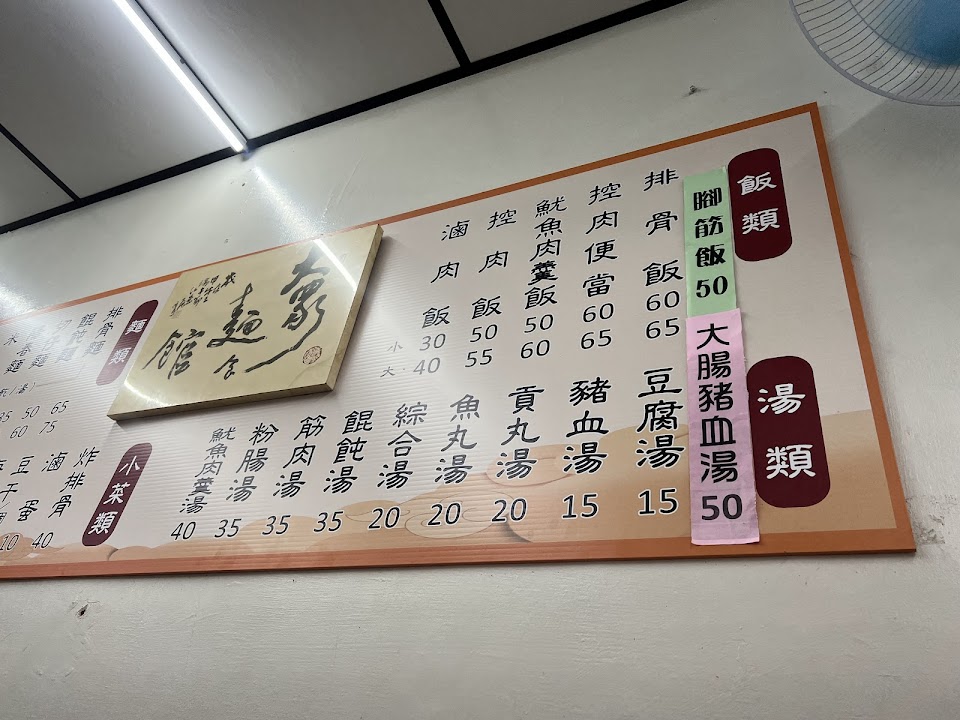 飯類
腳筋飯 50
排骨飯 60 65
控肉便當 60 65
魷魚肉羹飯 50 60
控肉飯 50 55
滷肉飯 小 30 大 40
湯類
大腸豬血湯 50
豆腐湯 15
豬血湯 15
貢丸湯 20
魚丸湯 20
綜合湯 20
餛飩湯 35
筋肉湯 35
粉腸湯 35
魷魚肉羹湯 40
大象
麵食
館
麵類
排骨麵 65 75
餛飩麵 50 60
小菜類
炸排骨 40
滷蛋 10